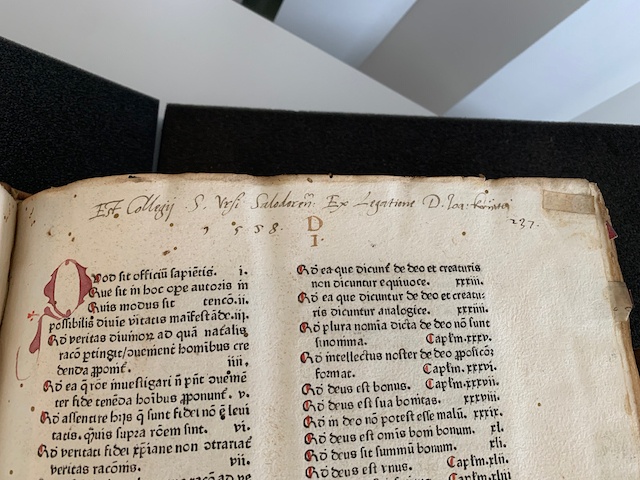 Est Collegij S. Ursi Salodoren̄: Ex Legatione D. Joa:
1558.
237.
D
I.
Quod sit officiū sapiētis. i.
Que sit in hoc ope autoris in
tencō. ii.
Quis modus sit
possibilis diuīe v̄itatis maīfestāde. iii.
Qd̄ veritas diuinoꝝ ad quā natal̓is
racō ꝑtingit
hominibus cre
denda iiii.
Qd̄ ea
ter fide tenēda hoībus v.
Qd̄ assentire hijs q̄ sunt fidei nō ē leui
tatis. quis supra rōem sunt. vi.
Qd̄ veritati fidei xp̄iane non
veritas racōnis. vii.
Qd̄ ea que dicunt̄ de deo et creaturis
non dicuntur equiuoce. xxxiii.
Qd̄ ea que dicuntur de deo et creatu-
ris dicuntur analogice. xxxiiii.
Qd̄ plura nomīa dicta de deo nō sunt
sinonima. Capl̓m. xxxv.
Qd̄ intellectus noster de deo ꝓpositōȝ
format. Capl̓m. xxxvi.
Qd̄ deus est bonus. Capl̓m. xxxvii.
Qd̄ deus est sua bonitas. xxxviii.
Qd̄ in deo nō potest esse malū. xxxix.
Qd̄ deus est om̄is boni bonum. xl.
Qd̄ deus sit summū bonum. xli.
Qd̄ deus est vnus. Capl̓m. xlii.
Capl̓m. xliii